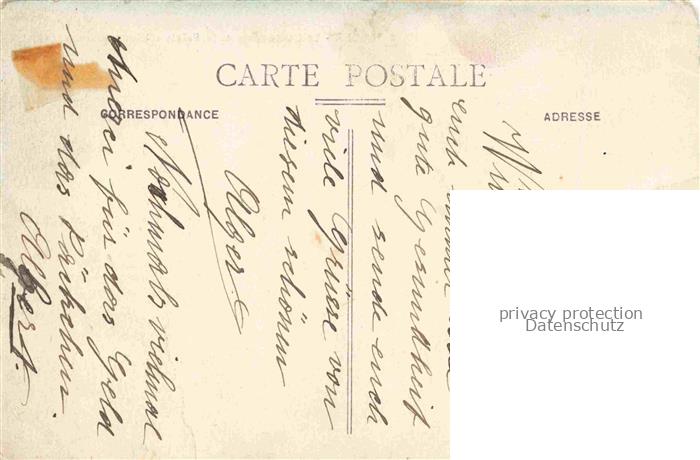 CARTE POSTALE
CORRESPONDANCE
ADRESSE
euch immer
gute Gesundheit
und sende euch
viele Grüsse von
diesem schönen
Alger.
Nochmals vielmal
merci für das Geld
und das Päckchen.
Albert.
privacy protection
Datenschutz